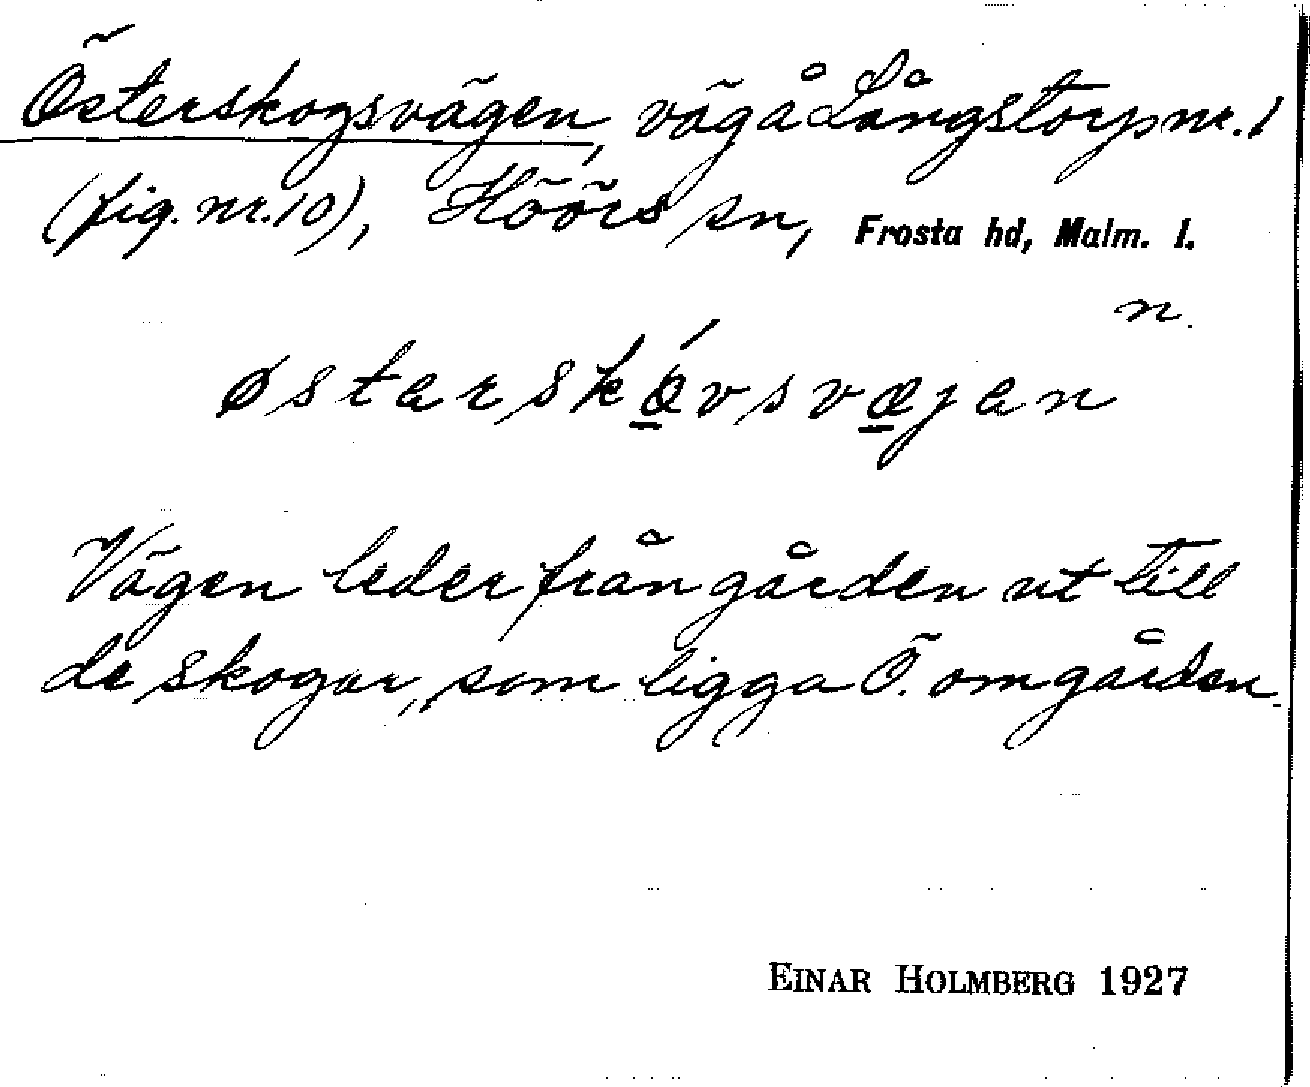 Österskogsvägen, väg å Långstorp nr. 1
(fig. nr. 10), Höörs sn, Frosta hd, Malm. l.
n.
østarskǫ́vsvæ̱jan
Vägen leder från gården ut till
de skogar, som ligga Ö. om gården.
EINAR HOLMBERG 1927